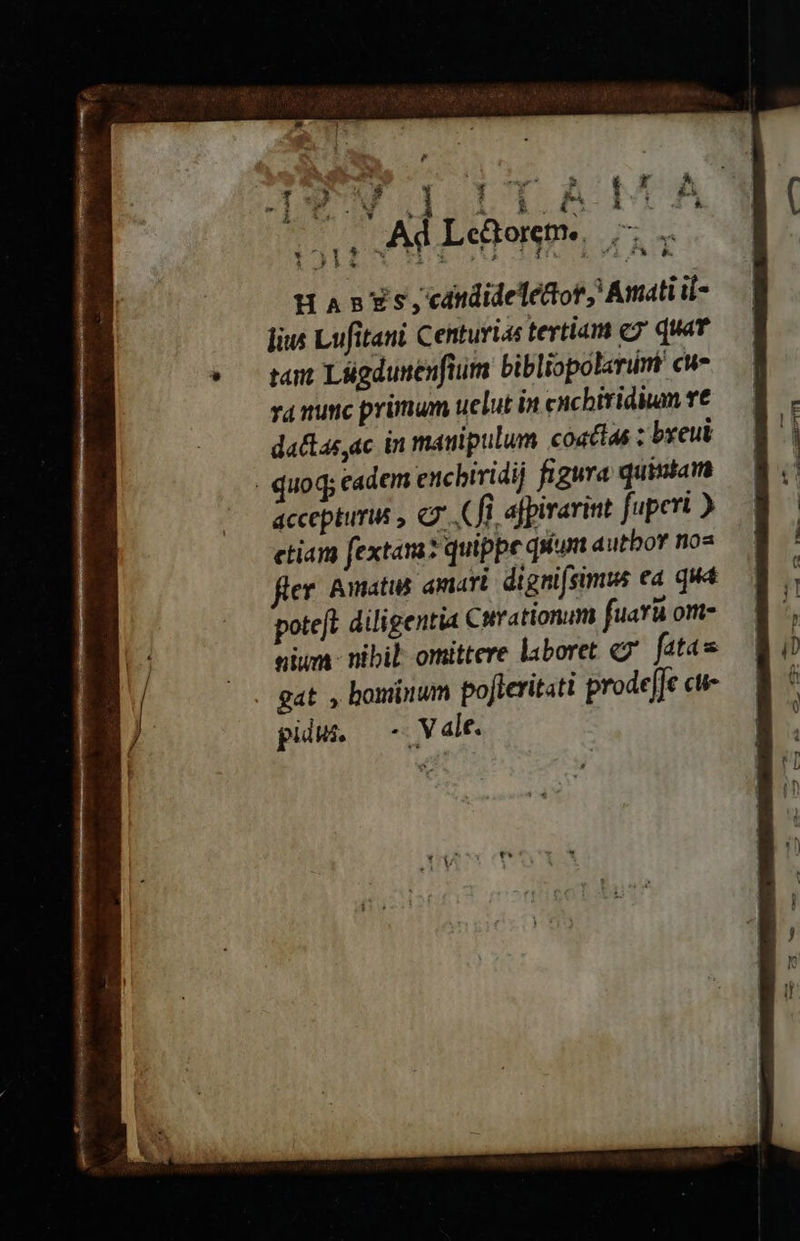 Ad Lectorem.
HABES, candide lector, Amati il-
lius Lusitani Centurias tertiam & quar
tam Lugdunensium bibliopolarum cu-
ra nunc primum uelut in enchiridium re
dactas, ac in manipulum coactas: breui
quoq; eadem enchiridij figura quintam
accepturus, & (si aspirarint superi)
etiam sextam: quippe quum author no=
ster Amatus amari dignissimus ea qua
potest diligentia Curationum suarū om-
nium nihil omittere laboret & sata=
gat, hominum posteritati prodesse cu-
pidus. Vale.